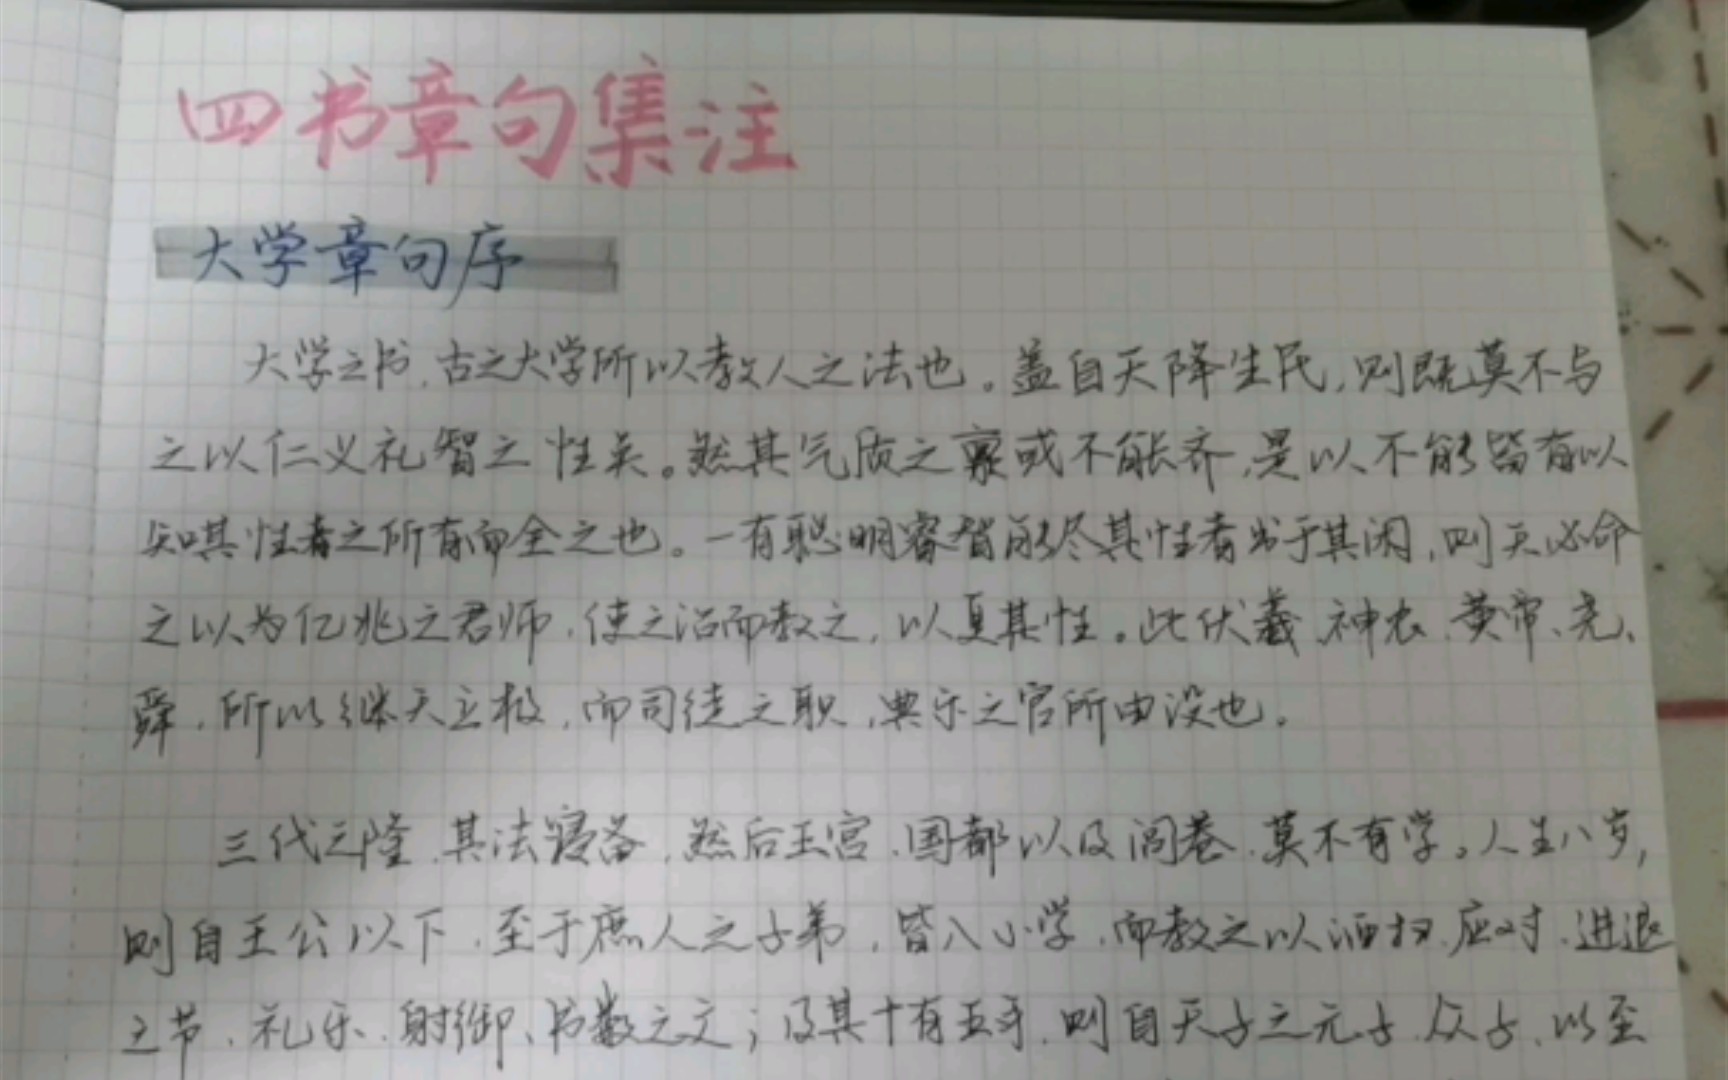 四书章句集注
大学章句序
大学之书,古之大学所以教人之法也。盖自天降生民,则既莫不与
之以仁义礼智之性矣。然其气质之禀或不能齐,是以不能皆有以
知其性者之所有而全之也。一有聪明睿智能尽其性者出于其闲,则天必命
之以为亿兆之君师,使之治而教之,以复其性。此伏羲、神农、黄帝、尧、
舜,所以继天立极,而司徒之职,典乐之官所由设也。
三代之隆,其法寝备,然后王宫、国都以及闾巷,莫不有学。人生八岁,
则自王公以下,至于庶人之子弟,皆入小学,而教之以洒扫、应对、进退
之节、礼乐、射御、书数之文;及其十有五年,则自天子之元子、众子,以至